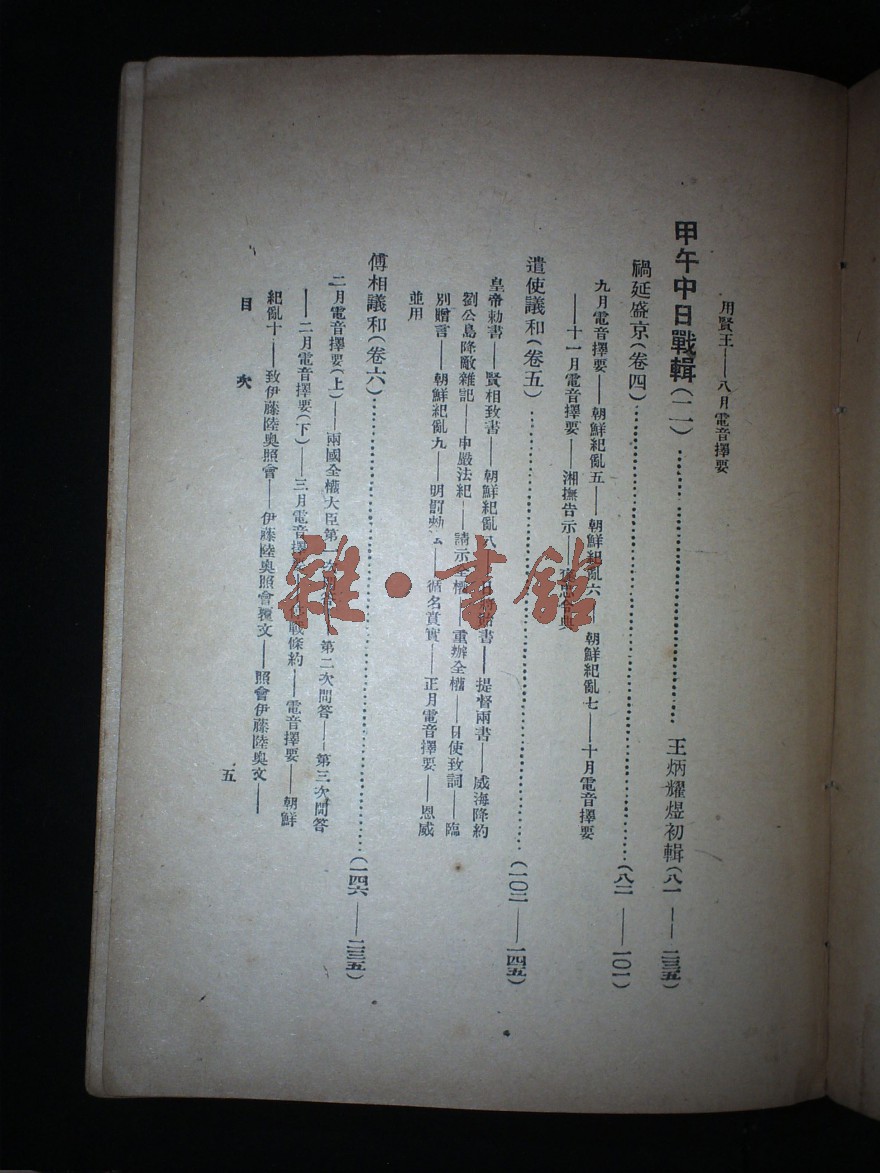 用賢王——八月電音擇要
甲午中日戰輯(二)……王炳耀煜初輯(八一——二三五)
禍延盛京(卷四)……(八二——一〇一)
九月電音擇要——朝鮮紀亂五——朝鮮紀亂六——朝鮮紀亂七——十月電音擇要
——十一月電音擇要——湘撫告示——
遣使議和(卷五)……(一〇二——一四五)
皇帝勅書——賢相致書——朝鮮紀亂八——書——提督兩書——威海降約
劉公島降敵雜記——申嚴法紀——請示全權——重辦全權——日使致詞——臨
別贈言——朝鮮紀亂九——明罰勅法——循名責實——正月電音擇要——恩威
並用
傅相議和(卷六)……(一四六——二三五)
二月電音擇要(上)——兩國全權大臣第一次問答——第二次問答——第三次問答
——二月電音擇要(下)——三月電音擇要——戰條約——電音擇要——朝鮮
紀亂十——致伊藤陸奧照會——伊藤陸奧照會覆文——照會伊藤陸奧文——
目次
五
雜·書館